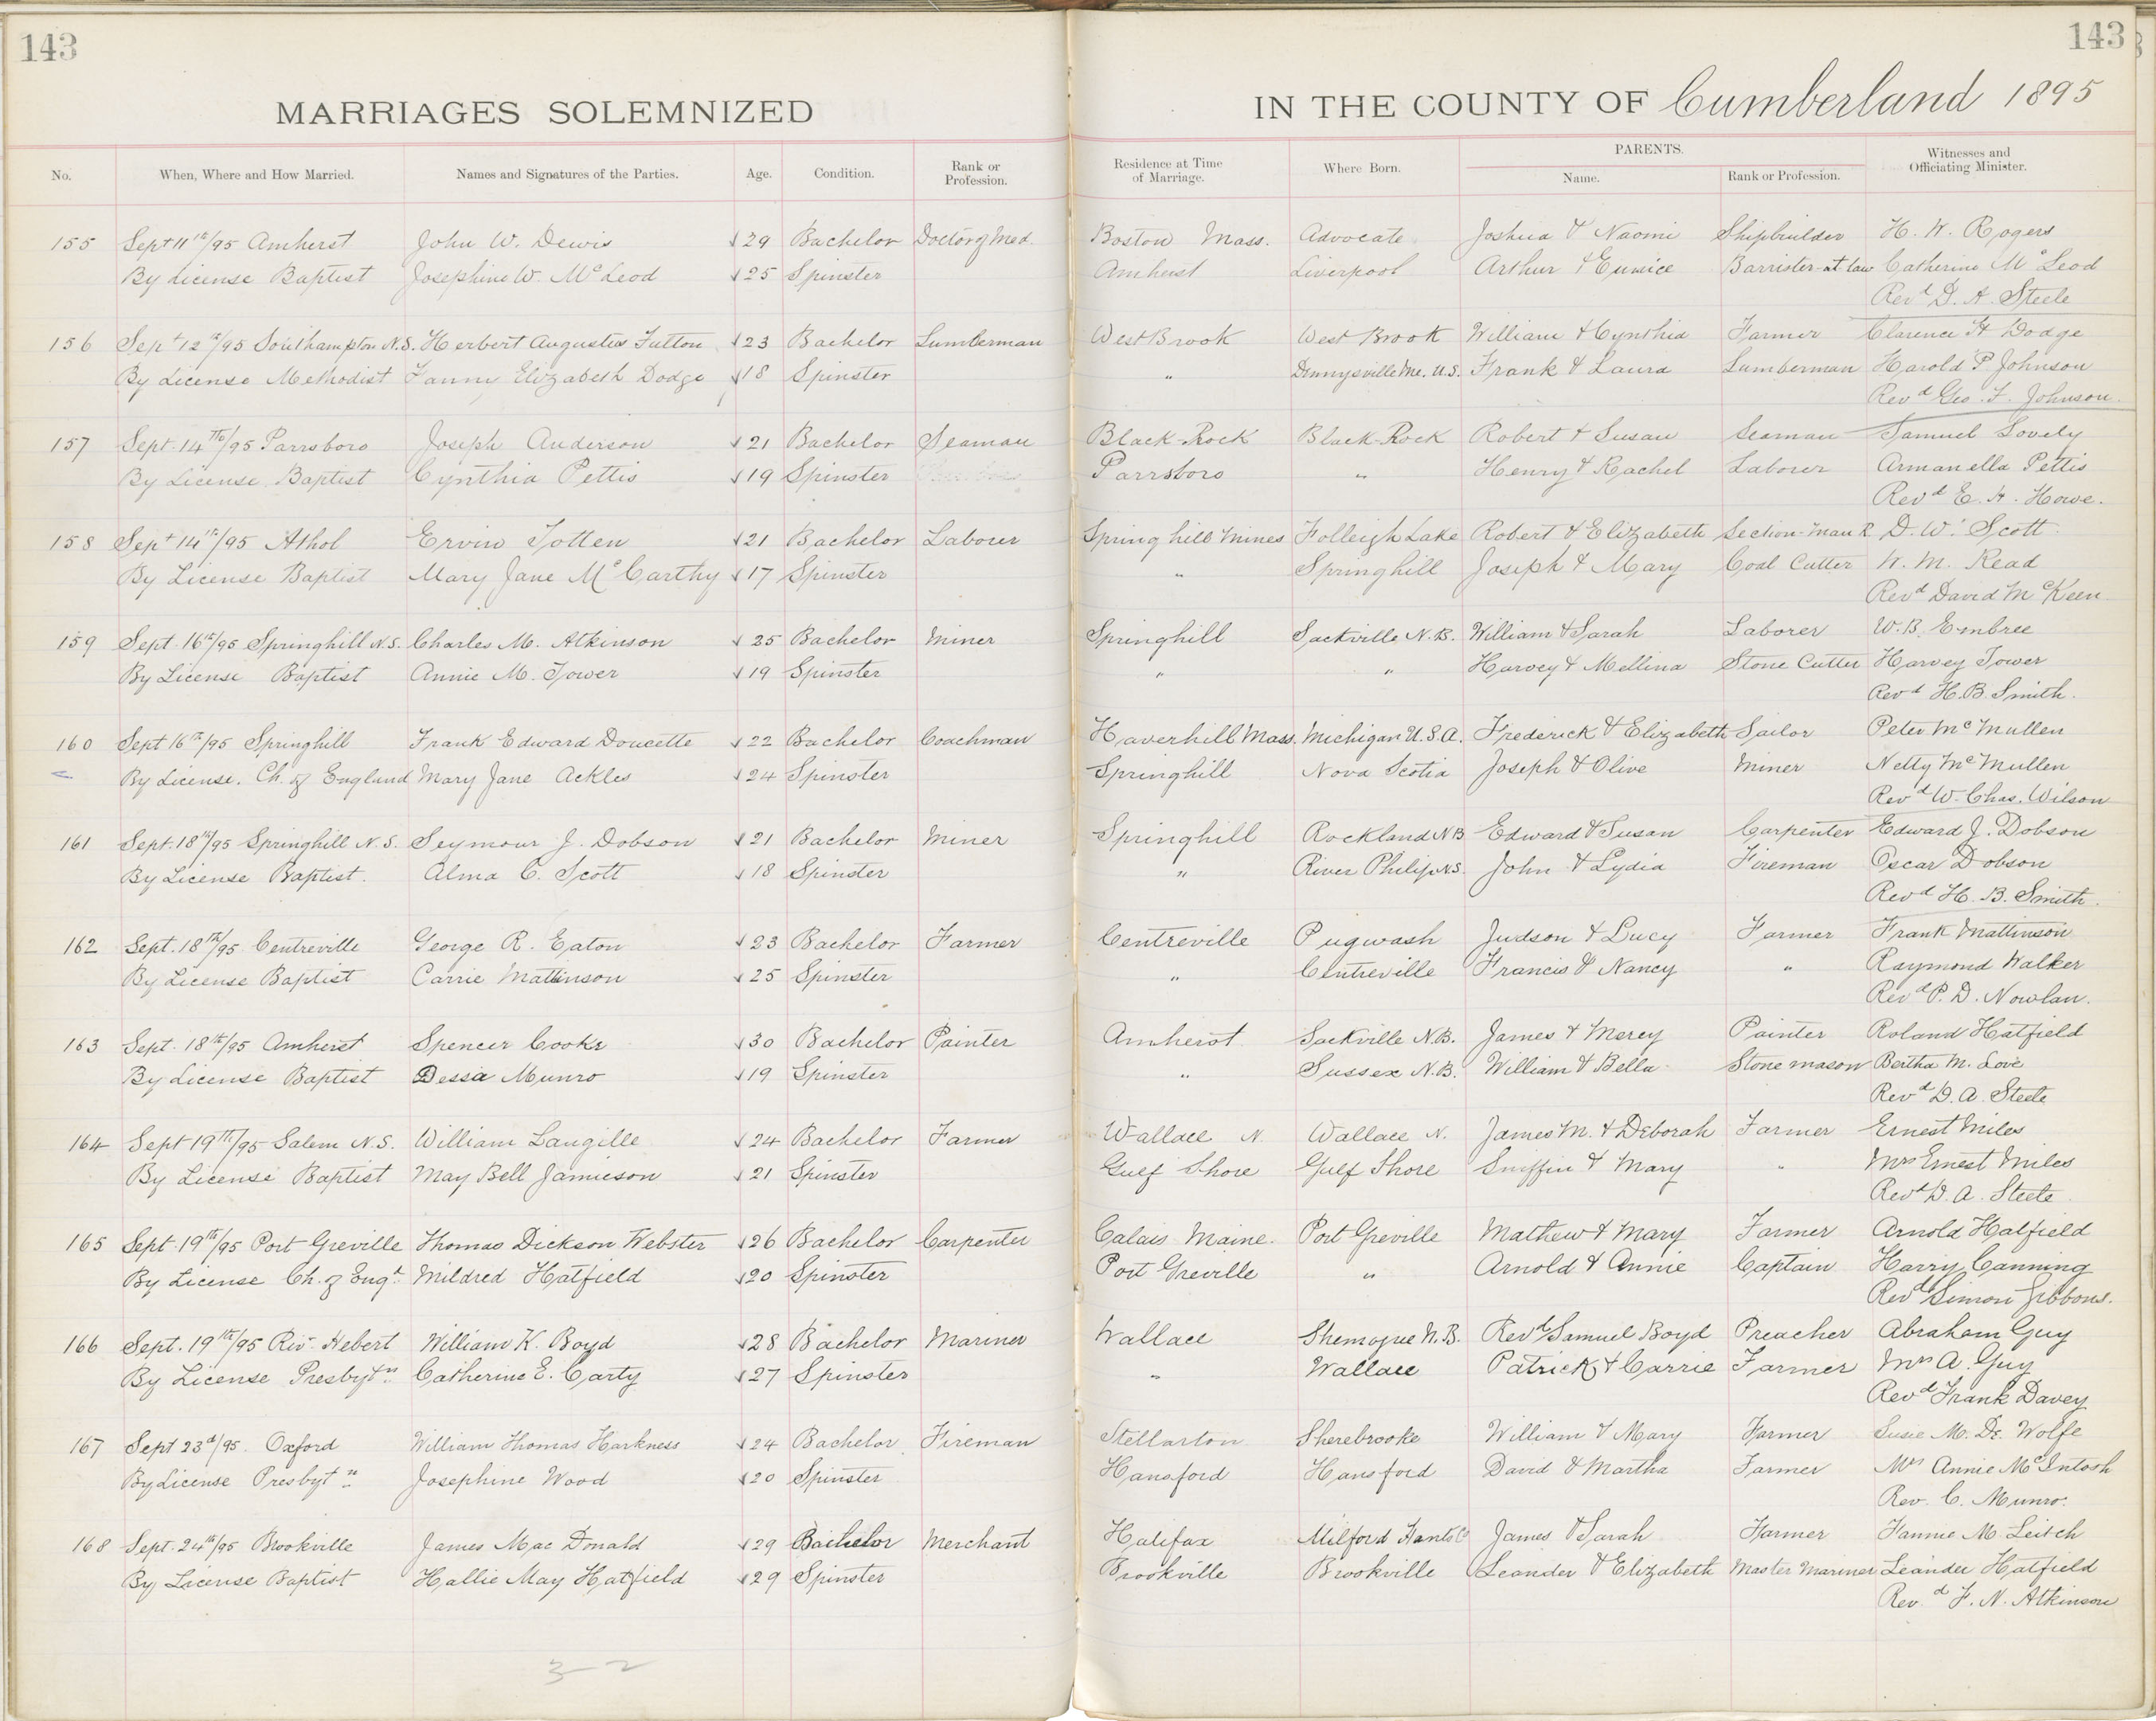 143
143
MARRIAGES SOLEMNIZED IN THE COUNTY OF Cumberland 1895
No. When, Where and How Married. Names and Signatures of the Parties. Age. Condition. Rank or Profession. Residence at Time of Marriage. Where Born. PARENTS. Name. Rank or Profession. Witnesses and Officiating Minister.
155 Sept 11th/95 Amherst John W. Dewis √29 Bachelor Doctor of Med. Boston Mass. Advocate Joshua & Naomi Shipbuilder H. W. Rogers
By License Baptist Josephine W. McLeod √25 Spinster Amherst Liverpool Arthur & Eunice Barrister-at-law Catherine McLeod
Revd D. A. Steele
156 Sept 12th/95 Southampton N.S. Herbert Augustus Fulton √23 Bachelor Lumberman West Brook West Brook William & Cynthia Farmer Clarence H Dodge
By License Methodist Fanny Elizabeth Dodge √18 Spinster " Dennysville Me. U.S. Frank & Laura Lumberman Harold P Johnson
Revd Geo. F. Johnson.
157 Sept. 14th/95 Parrsboro Joseph Anderson √21 Bachelor Seaman Black-Rock Black-Rock Robert & Susan Seaman Samuel Lovely
By License Baptist Cynthia Pettis √19 Spinster Parrsboro " Henry & Rachel Laborer Armanella Pettis
Revd E. H. Howe.
158 Sept 14th/95 Athol Ervin Totten √21 Bachelor Laborer Spring hill Mines Folleigh Lake Robert & Elizabeth Section-man R D. W. Scott
By License Baptist Mary Jane McCarthy √17 Spinster " Springhill Joseph & Mary Coal Cutter W. M. Read
Revd David McKeen
159 Sept. 16th/95 Springhill N.S. Charles M. Atkinson √25 Bachelor Miner Springhill Sackville N.B. William & Sarah Laborer W. B. Embree
By License Baptist Annie M. Tower √19 Spinster " " Harvey & Mellina Stone Cutter Harvey Tower
Revd H. B. Smith.
160 Sept 16th/95 Springhill Frank Edward Doucette √22 Bachelor Coachman Haverhill Mass. Michigan U.S.A. Frederick & Elizabeth Sailor Peter McMullen
By License. Ch. of England Mary Jane Ackles √24 Spinster Springhill Nova Scotia Joseph & Olive Miner Netty McMullen
Revd W. Chas. Wilson
161 Sept. 18th/95 Springhill N.S. Seymour J. Dobson √21 Bachelor Miner Springhill Rockland NB Edward & Susan Carpenter Edward J. Dobson
By License Baptist. Alma C. Scott √18 Spinster " River Philip N.S. John & Lydia Fireman Oscar Dobson
Revd H. B. Smith.
162 Sept. 18th/95 Centreville George R. Eaton √23 Bachelor Farmer Centreville Pugwash Judson & Lucy Farmer Frank Mattinson
By License Baptist Carrie Mattinson √25 Spinster " Centreville Francis & Nancy " Raymond Walker
Revd P. D. Nowlan.
163 Sept. 18th/95 Amherst Spencer Cooke √30 Bachelor Painter Amherst Sackville N.B. James & Mercy Painter Roland Hatfield
By License Baptist Dessie Munro √19 Spinster " Sussex N.B. William & Bella Stone mason Bertha M. Love
Revd D. A. Steele
164 Sept 19th/95 Salem N.S. William Langille √24 Bachelor Farmer Wallace N. Wallace N. James M. & Deborah Farmer Ernest Miles
By License Baptist May Bell Jamieson √21 Spinster Gulf Shore Gulf Shore Sniffin & Mary " Mrs Ernest Miles
Revd D. A. Steele
165 Sept. 19th/95 Port Greville Thomas Dickson Webster √26 Bachelor Carpenter Calais Maine. Port Greville Mathew & Mary Farmer Arnold Hatfield
By License Ch. of Engd. Mildred Hatfield √20 Spinster Port Greville " Arnold & Annie Captain Harry Canning
Revd Simon Gibbons.
166 Sept. 19th/95 Riv. Hebert William K. Boyd √28 Bachelor Mariner Wallace Shemogue N.B. Revd Samuel Boyd Preacher Abraham Guy
By License Presbytn Catherine E. Carty √27 Spinster " Wallace Patrick & Carrie Farmer Mrs A. Guy
Revd Frank Davey
167 Sept 23d/95. Oxford William Thomas Harkness √24 Bachelor Fireman Stellarton Sherebrooke William & Mary Farmer Susie M. De Wolfe
By License Presbytn Josephine Wood √20 Spinster Hansford Hansford David & Martha Farmer Mrs Annie McIntosh
Rev. C. Munro.
168 Sept. 24th/95 Brookville James Mac Donald √29 Bachelor Merchant Halifax Milford Hants Co James & Sarah Farmer Fannie M. Leitch
By License Baptist Hallie May Hatfield √29 Spinster Brookville Brookville Leander & Elizabeth Master Mariner Leander Hatfield
Revd F. N. Atkinson
3-2